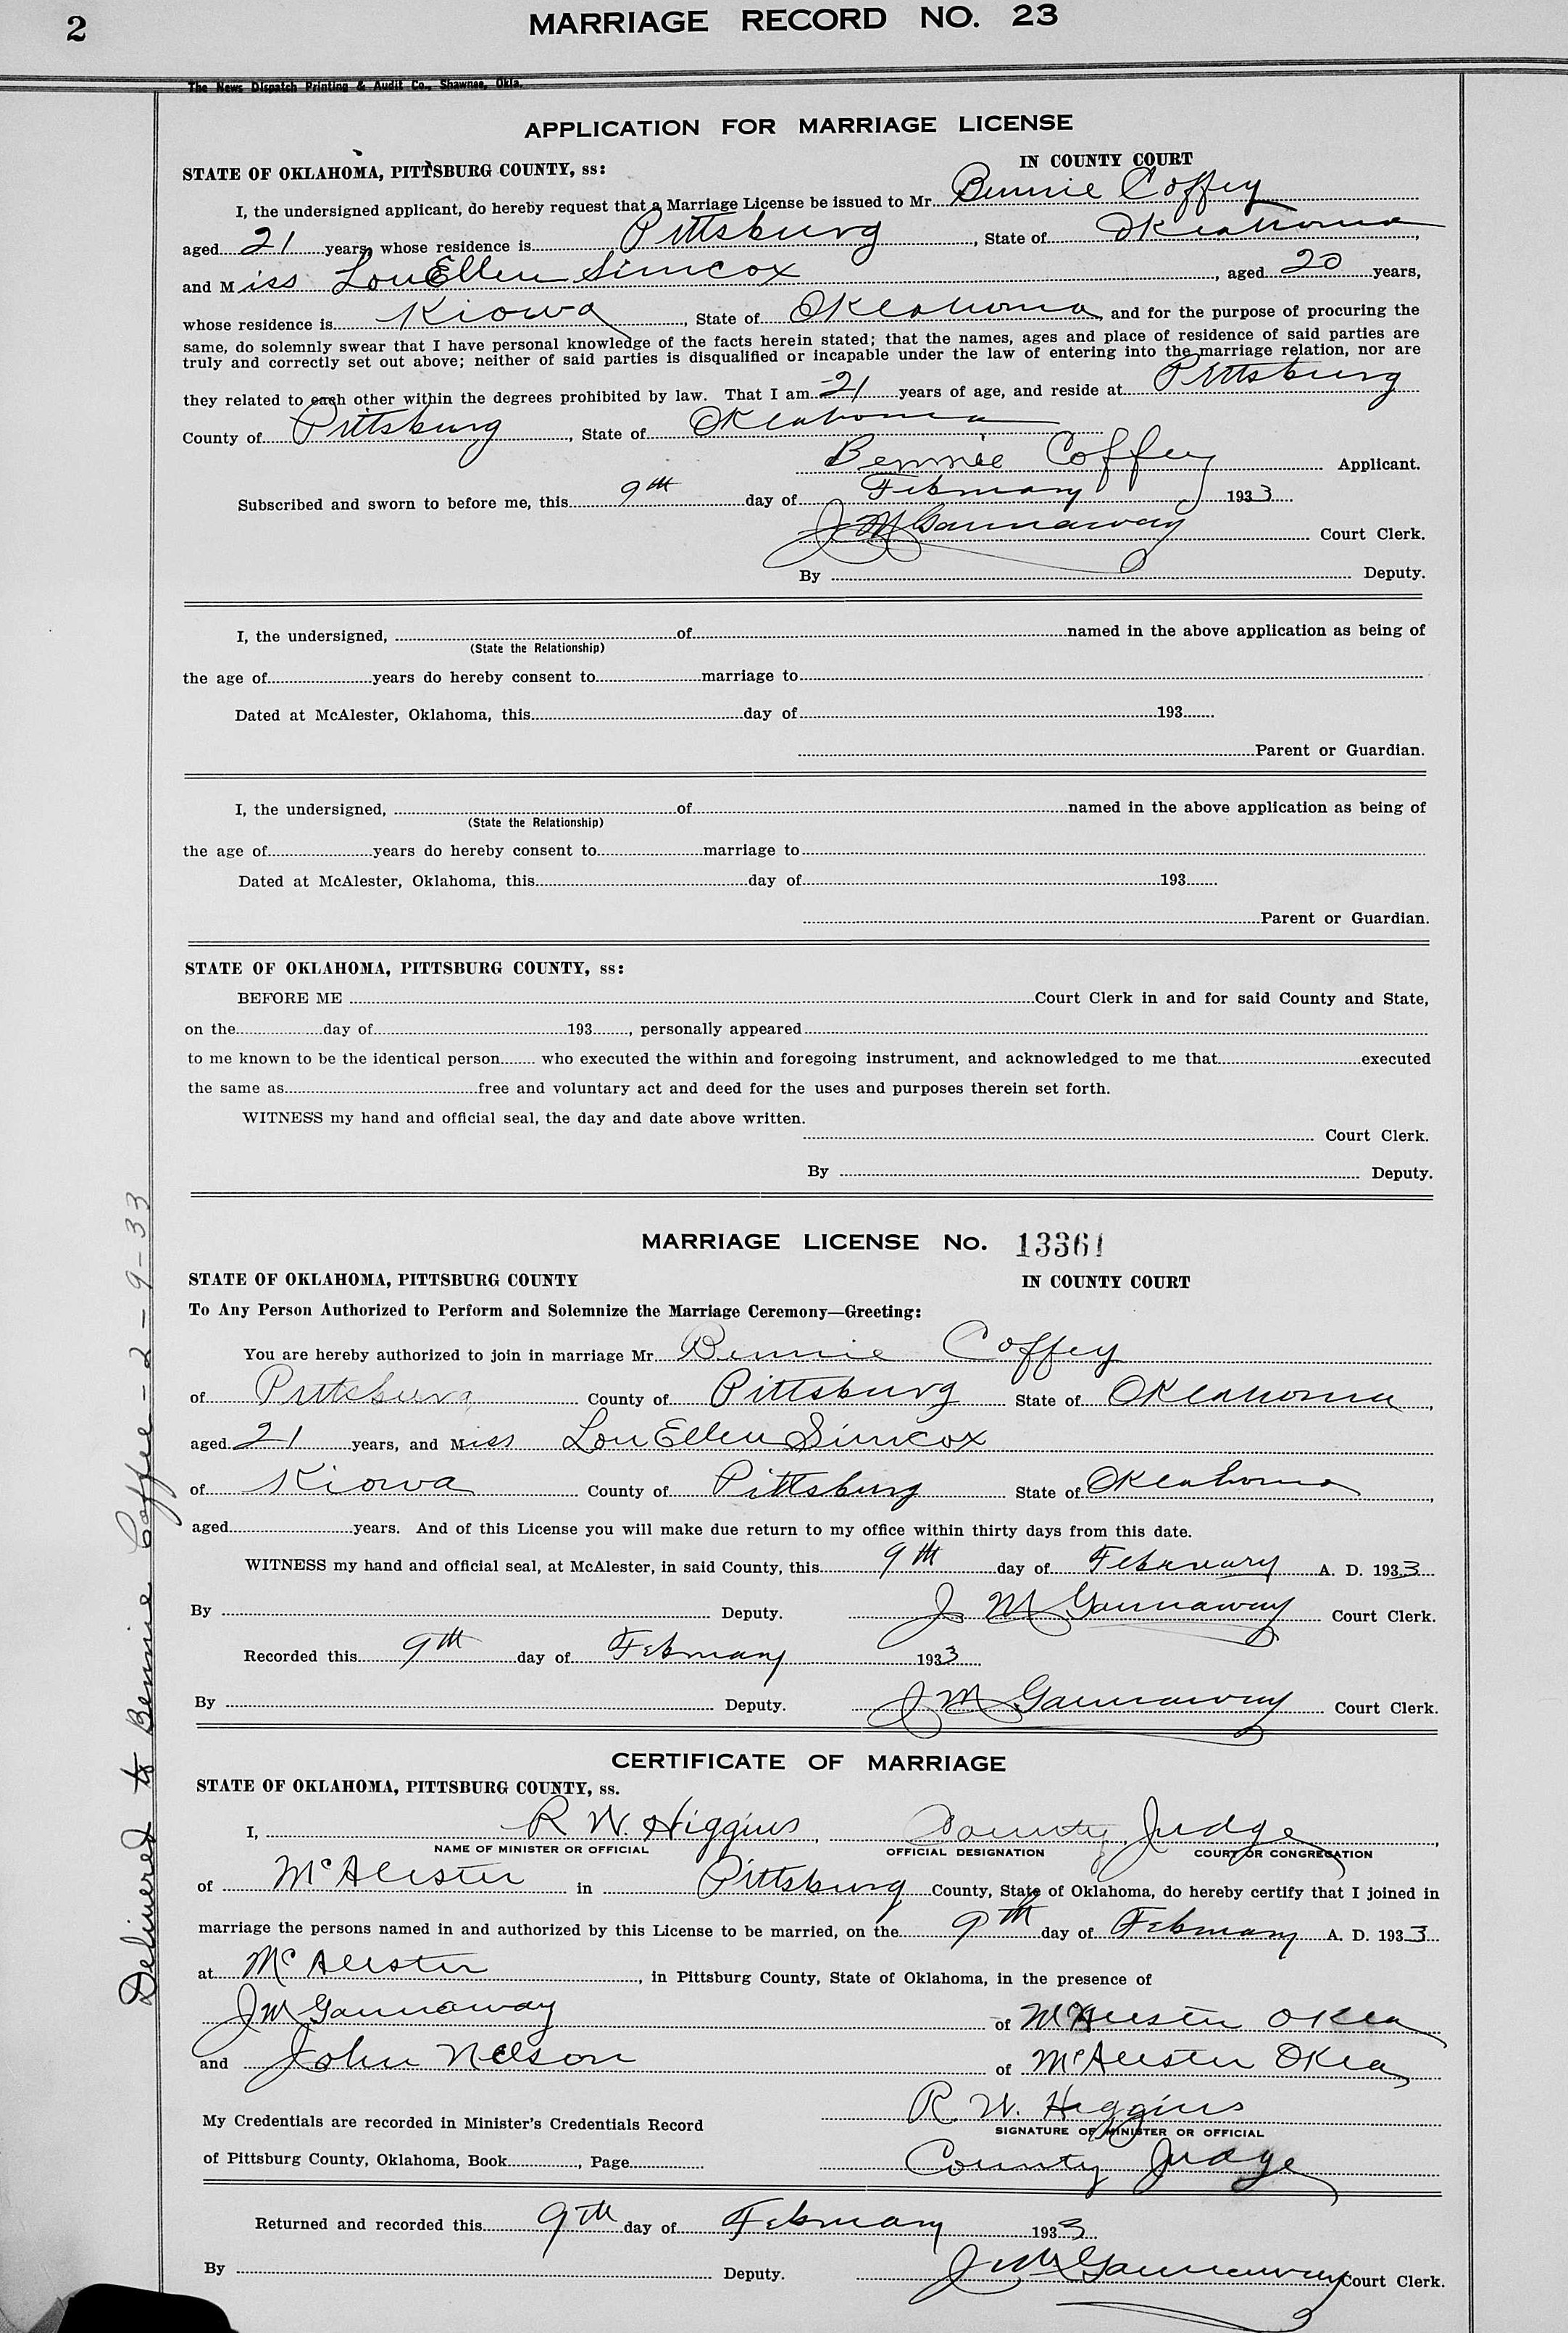 2
MARRIAGE RECORD NO. 23
The News Dispatch Printing & Audit Co., Shawnee, Okla.
APPLICATION FOR MARRIAGE LICENSE
STATE OF OKLAHOMA, PITTSBURG COUNTY, ss:
IN COUNTY COURT
I, the undersigned applicant, do hereby request that a Marriage License be issued to Mr. Bennie Coffey
aged 21 years, whose residence is Pittsburg, State of Oklahoma,
and Miss LouEllen Simcox, aged 20 years,
whose residence is Kiowa, State of Oklahoma, and for the purpose of procuring the
same, do solemnly swear that I have personal knowledge of the facts herein stated; that the names, ages and place of residence of said parties are
truly and correctly set out above; neither of said parties is disqualified or incapable under the law of entering into the marriage relation, nor are
they related to each other within the degrees prohibited by law. That I am 21 years of age, and reside at Pittsburg
County of Pittsburg, State of Oklahoma
Bennie Coffey Applicant.
Subscribed and sworn to before me, this 9th day of February 1933
J M Gannaway Court Clerk.
By Deputy.
I, the undersigned, of named in the above application as being of
(State the Relationship)
the age of years do hereby consent to marriage to
Dated at McAlester, Oklahoma, this day of 193
Parent or Guardian.
I, the undersigned, of named in the above application as being of
(State the Relationship)
the age of years do hereby consent to marriage to
Dated at McAlester, Oklahoma, this day of 193
Parent or Guardian.
STATE OF OKLAHOMA, PITTSBURG COUNTY, ss:
BEFORE ME Court Clerk in and for said County and State,
on the day of 193, personally appeared
to me known to be the identical person who executed the within and foregoing instrument, and acknowledged to me that executed
the same as free and voluntary act and deed for the uses and purposes therein set forth.
WITNESS my hand and official seal, the day and date above written.
Court Clerk.
By Deputy.
MARRIAGE LICENSE No. 13361
STATE OF OKLAHOMA, PITTSBURG COUNTY
IN COUNTY COURT
To Any Person Authorized to Perform and Solemnize the Marriage Ceremony—Greeting:
You are hereby authorized to join in marriage Mr. Bennie Coffey
of Pittsburg County of Pittsburg State of Oklahoma,
aged 21 years, and Miss LouEllen Simcox
of Kiowa County of Pittsburg State of Oklahoma,
aged years. And of this License you will make due return to my office within thirty days from this date.
WITNESS my hand and official seal, at McAlester, in said County, this 9th day of February A. D. 1933
By Deputy. J M Gannaway Court Clerk.
Recorded this 9th day of February 1933
By Deputy. J M Gannaway Court Clerk.
Delivered to Bennie Coffee - 2-9-33
CERTIFICATE OF MARRIAGE
STATE OF OKLAHOMA, PITTSBURG COUNTY, ss.
I, R W. Higgins, County Judge,
NAME OF MINISTER OR OFFICIAL OFFICIAL DESIGNATION COURT OR CONGREGATION
of McAlester in Pittsburg County, State of Oklahoma, do hereby certify that I joined in
marriage the persons named in and authorized by this License to be married, on the 9th day of February A. D. 1933
at McAlester, in Pittsburg County, State of Oklahoma, in the presence of
J M Gannaway of McAlester Okla
and John Nelson of McAlester Okla
R. W. Higgins
My Credentials are recorded in Minister's Credentials Record
SIGNATURE OF MINISTER OR OFFICIAL
of Pittsburg County, Oklahoma, Book, Page County Judge
Returned and recorded this 9th day of February 1933
By Deputy. J M Gannaway Court Clerk.